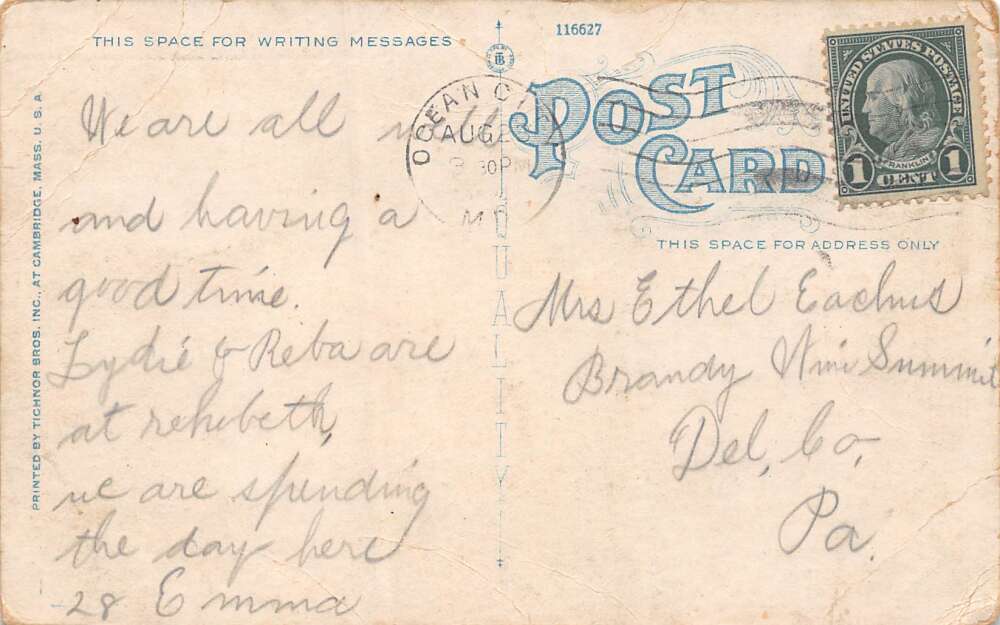 THIS SPACE FOR WRITING MESSAGES
116627
PRINTED BY TICHNOR BROS. INC., AT CAMBRIDGE, MASS. U.S.A.
We are all well
and having a
good time.
Lydie & Reba are
at rehobeth,
we are spending
the day here
28 Emma
QUALITY
OCEAN CITY
AUG 28
30 PM
MD
POST
CARD
UNITED STATES POSTAGE
FRANKLIN
1 CENT 1
THIS SPACE FOR ADDRESS ONLY
Mrs Ethel Eachus
Brandy Wine Summit
Del, Co,
Pa.